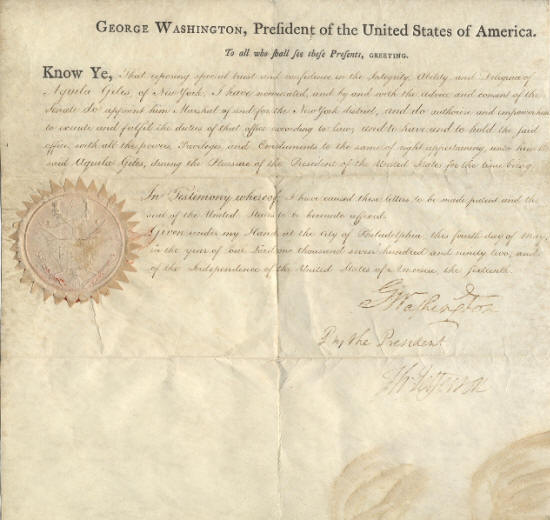 GEORGE WASHINGTON, President of the United States of America.
To all who shall see these Presents, GREETING.
KNOW YE, That reposing special trust and confidence in the Integrity, Ability and Diligence of
Aquila Giles, of New York, I have nominated, and by and with the advice and consent of the
Senate do appoint him Marshal of and for the New York district, and do authorise and empower him
to execute and fulfil the duties of that office according to law; and to have and to hold the said
office with all the powers, Privileges and Emoluments to the same of right appertaining, unto him the
said Aquila Giles, during the Pleasure of the President of the United States for the time being.
In Testimony whereof, I have caused these letters to be made patent and the
seal of the United States to be hereunto affixed.
Given under my Hand at the City of Philadelphia, this fourth day of May,
in the year of our Lord one thousand seven hundred and ninety two; and
of the Independence of the United States of America, the sixteenth.
G Washington
By the President
Th: Jefferson